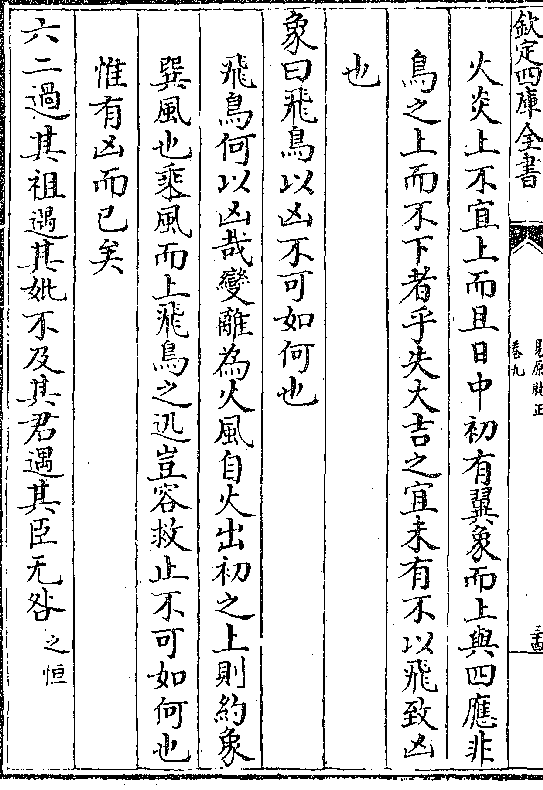 欽定四庫全書
卷九
火炎上不宜上而且日中初有翼象而上與四應非
鳥之上而不下者乎失大吉之宜未有不以飛致凶
也
象曰飛鳥以凶不可如何也
飛鳥何以凶哉變離為火風自火出初之上則約象
巽風也乘風而上飛鳥之迅豈容救止不可如何也
惟有凶而已矣
六二過其祖遇其妣不及其君遇其臣无咎之恒